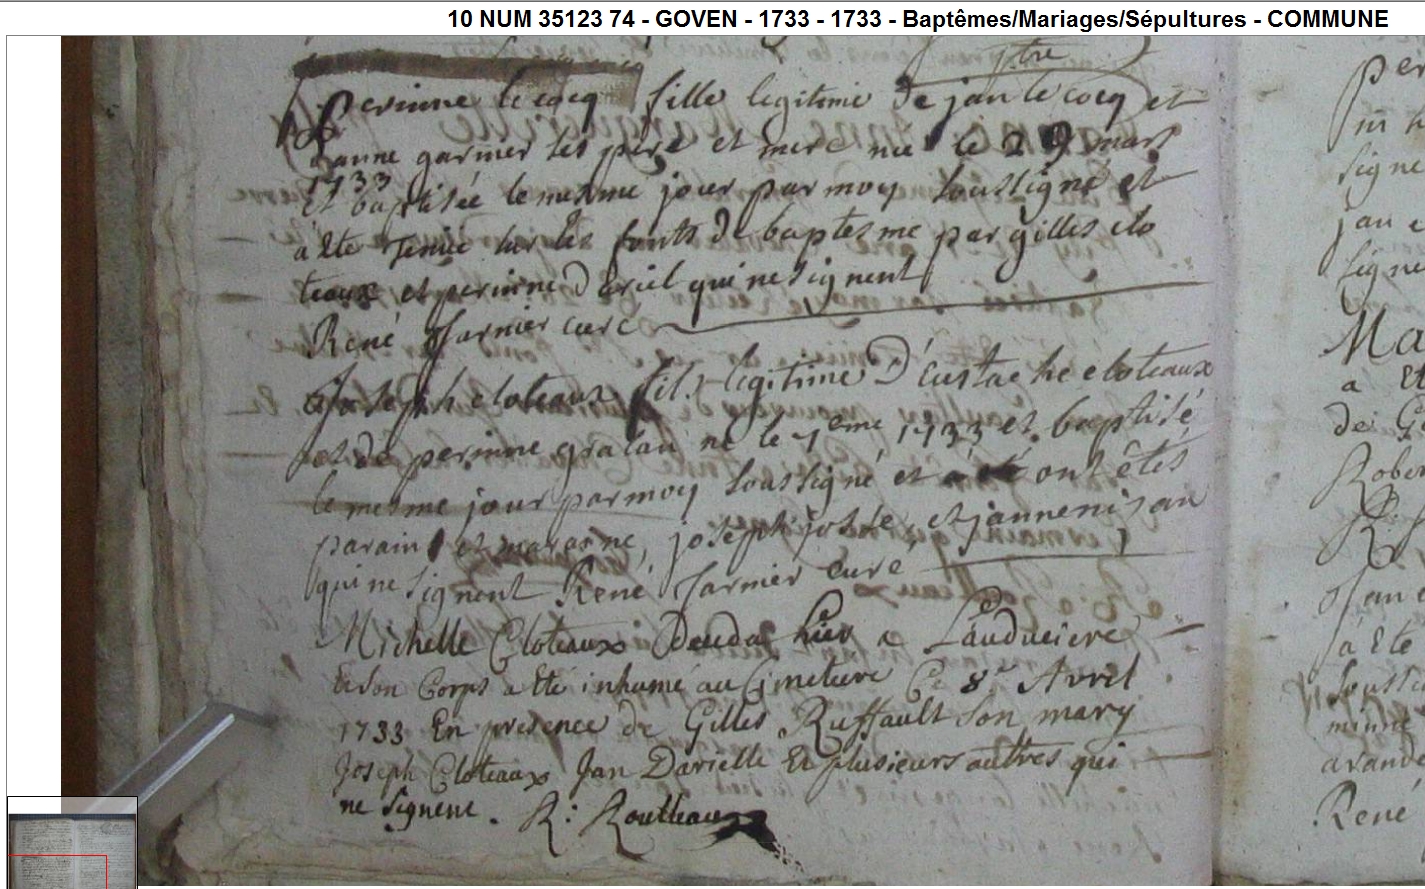 10 NUM 35123 74 - GOVEN - 1733 - 1733 - Baptêmes/Mariages/Sépultures - COMMUNE
ptre
Perinne le cocq fille legitime de jan le cocq et
janne garnier ses pere et mere nee le 29 mars
1733
et baptisée le mesme jour par moy soussigné et
a été tenüe sur les fonts de baptesme par gilles clo
teaux et perinne dariel qui ne signent
René curé
joseph cloteaux fils legitime d'eustache cloteaux
et de perinne gralan né le 7eme 1733 et baptisé
le mesme jour par moy soussigné et ont étés
parain et maraine, joseph josse, et janne nizan
qui ne signent René curé
Michelle Cloteaux Deuda hier a Lauduciere
Et son Corps a eté inhumé au Cimetiere Ce 8e Avril
1733 En presence de Gilles Ruffault son mary
Joseph Cloteaux Jan Darielle Et plusieurs autres qui
ne signent. R: Roulleaux
Per
signe
jan
signe
Ma
a Et
de
Rober
jan
a Ete
souss
René